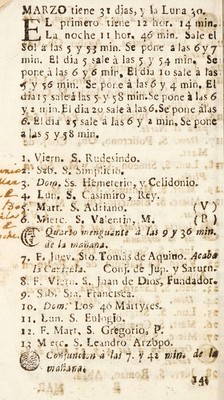 MARZO tiene 31 dias, y la Luna 30.
EL primero tiene 12 hor. 14 min.
La noche 11 hor. 46 min. Sale el
Sol à las 5 y 53 min. Se pone à las 6 y 7
min. El dia 5 sale à las 5 y 54 min. Se
pone à las 6 y 6 min. El dia 10 sale à las
5 y 56 min. Se pone à las 6 y 4 min. El
dia 15 sale à las 5 y 58 min. Se pone à las 6
y 2 min. El dia 20 sale à las 6. Se pone à las
6. El dia 25 sale à las 6 y 2 min. Se pone
à las 5 y 58 min.
1. Viern. S. Rudesindo.
2. Sab. S. Simplicio.
3. Dom. Ss. Hemeterio, y Celidonio.
4. Lun. S. Casimiro, Rey.
5. Mart. S. Adriano. (V)
6. Mierc. S. Valentin, M. (P)
Quarto menguante à las 9 y 36 min.
de la mañana.
7. F. Juev. Sto. Tomás de Aquino. Acaba
la Conj. de Jup. y Saturn.
8. F. Viern. S. Juan de Dios, Fundador.
9. Sab. Sta. Francisca.
10. Dom. Los 40 Martyres.
11. Lun. S. Eulogio.
12. F. Mart. S. Gregorio, P.
13 Merc. S. Leandro Arzbpo.
Conjuncion à las 7. y 42 min. de la
mañana.
14.